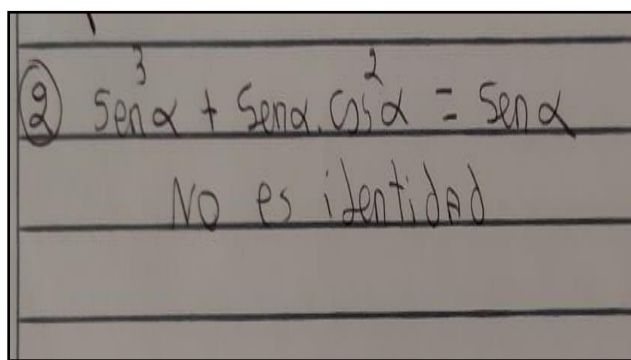 ② Sen³α + Senα.Cos²α = Senα
NO es identidad